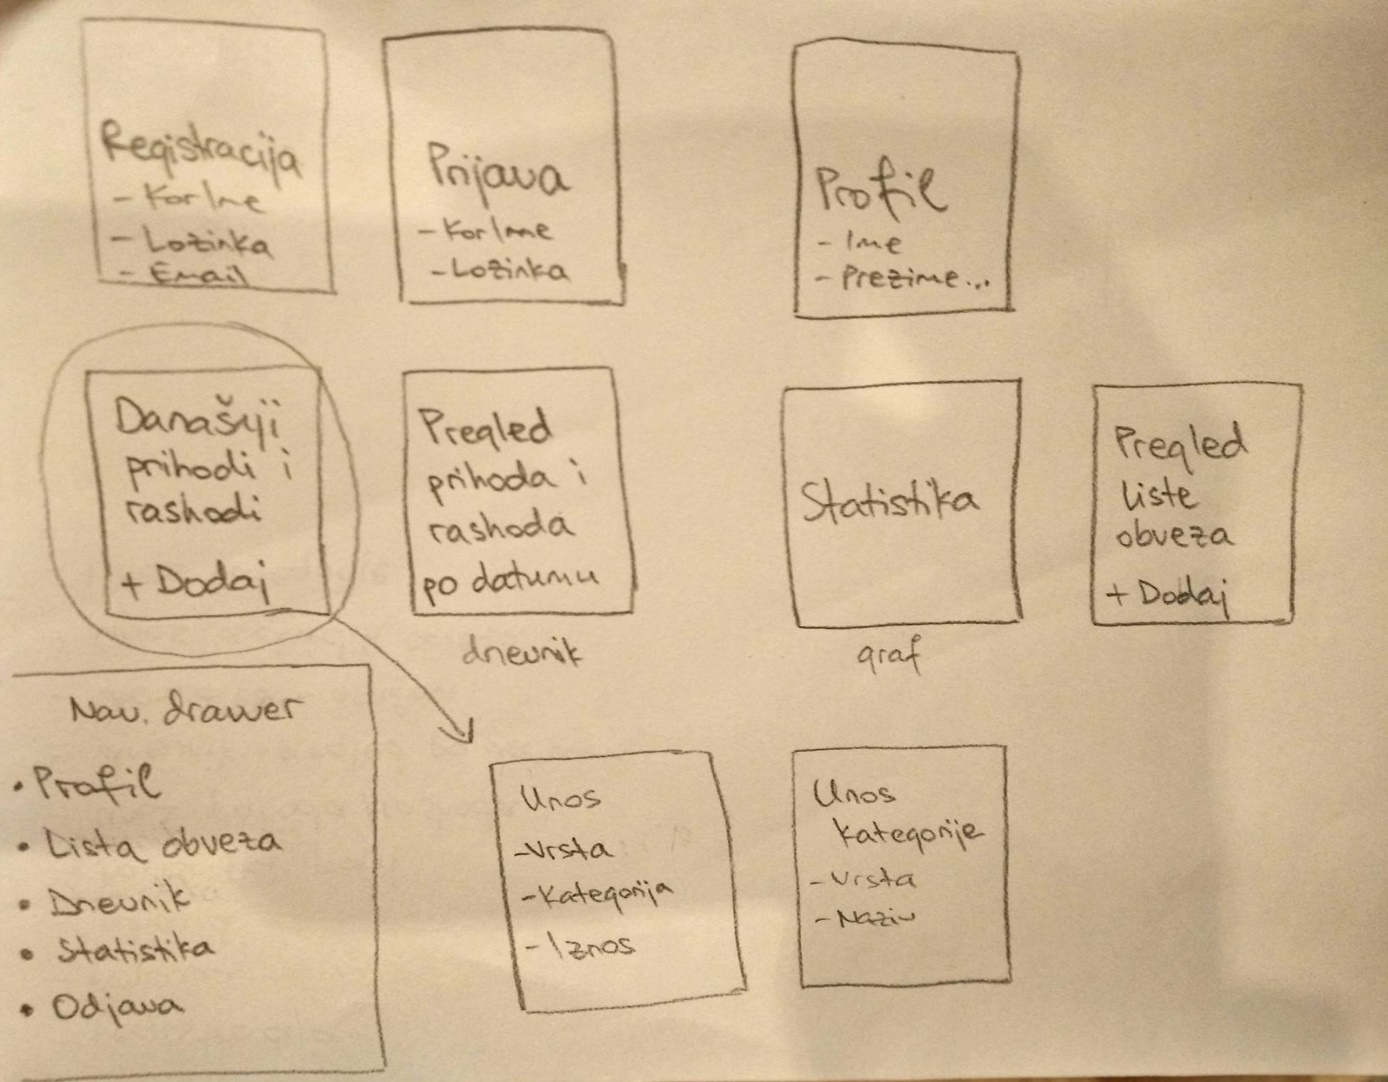 Registracija
- Kor Ime
- Lozinka
- Email
Prijava
- Kor Ime
- Lozinka
Profil
- Ime
- Prezime...
Današnji
prihodi i
rashodi
+ Dodaj
Pregled
prihoda i
rashoda
po datumu
dnevnik
Statistika
graf
Pregled
liste
obveza
+ Dodaj
Nav. drawer
• Profil
• Lista obveza
• Dnevnik
• Statistika
• Odjava
Unos
- Vrsta
- Kategorija
- Iznos
Unos
kategorije
- Vrsta
- Naziv